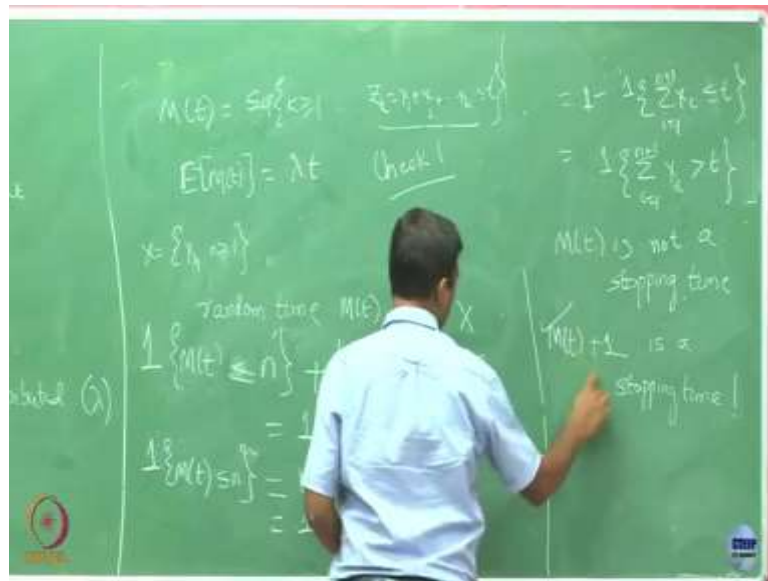 M(t) = Sup{k≥1 Z_k = x_1 + x_2 + .. x_k ≤ t}
E[M(t)] = λt Check!
X = {x_n, n≥1}
random time M(t) X
1{M(t) ≤ n} +
= 1
1{M(t) ≤ n} =
= 1
(λ)
= 1 - 1{∑_{i=1}^{n+1} x_i ≤ t}
= 1{∑_{i=1}^{n+1} x_i > t}
M(t) is not a
stopping time
M(t) + 1 is a
stopping time!